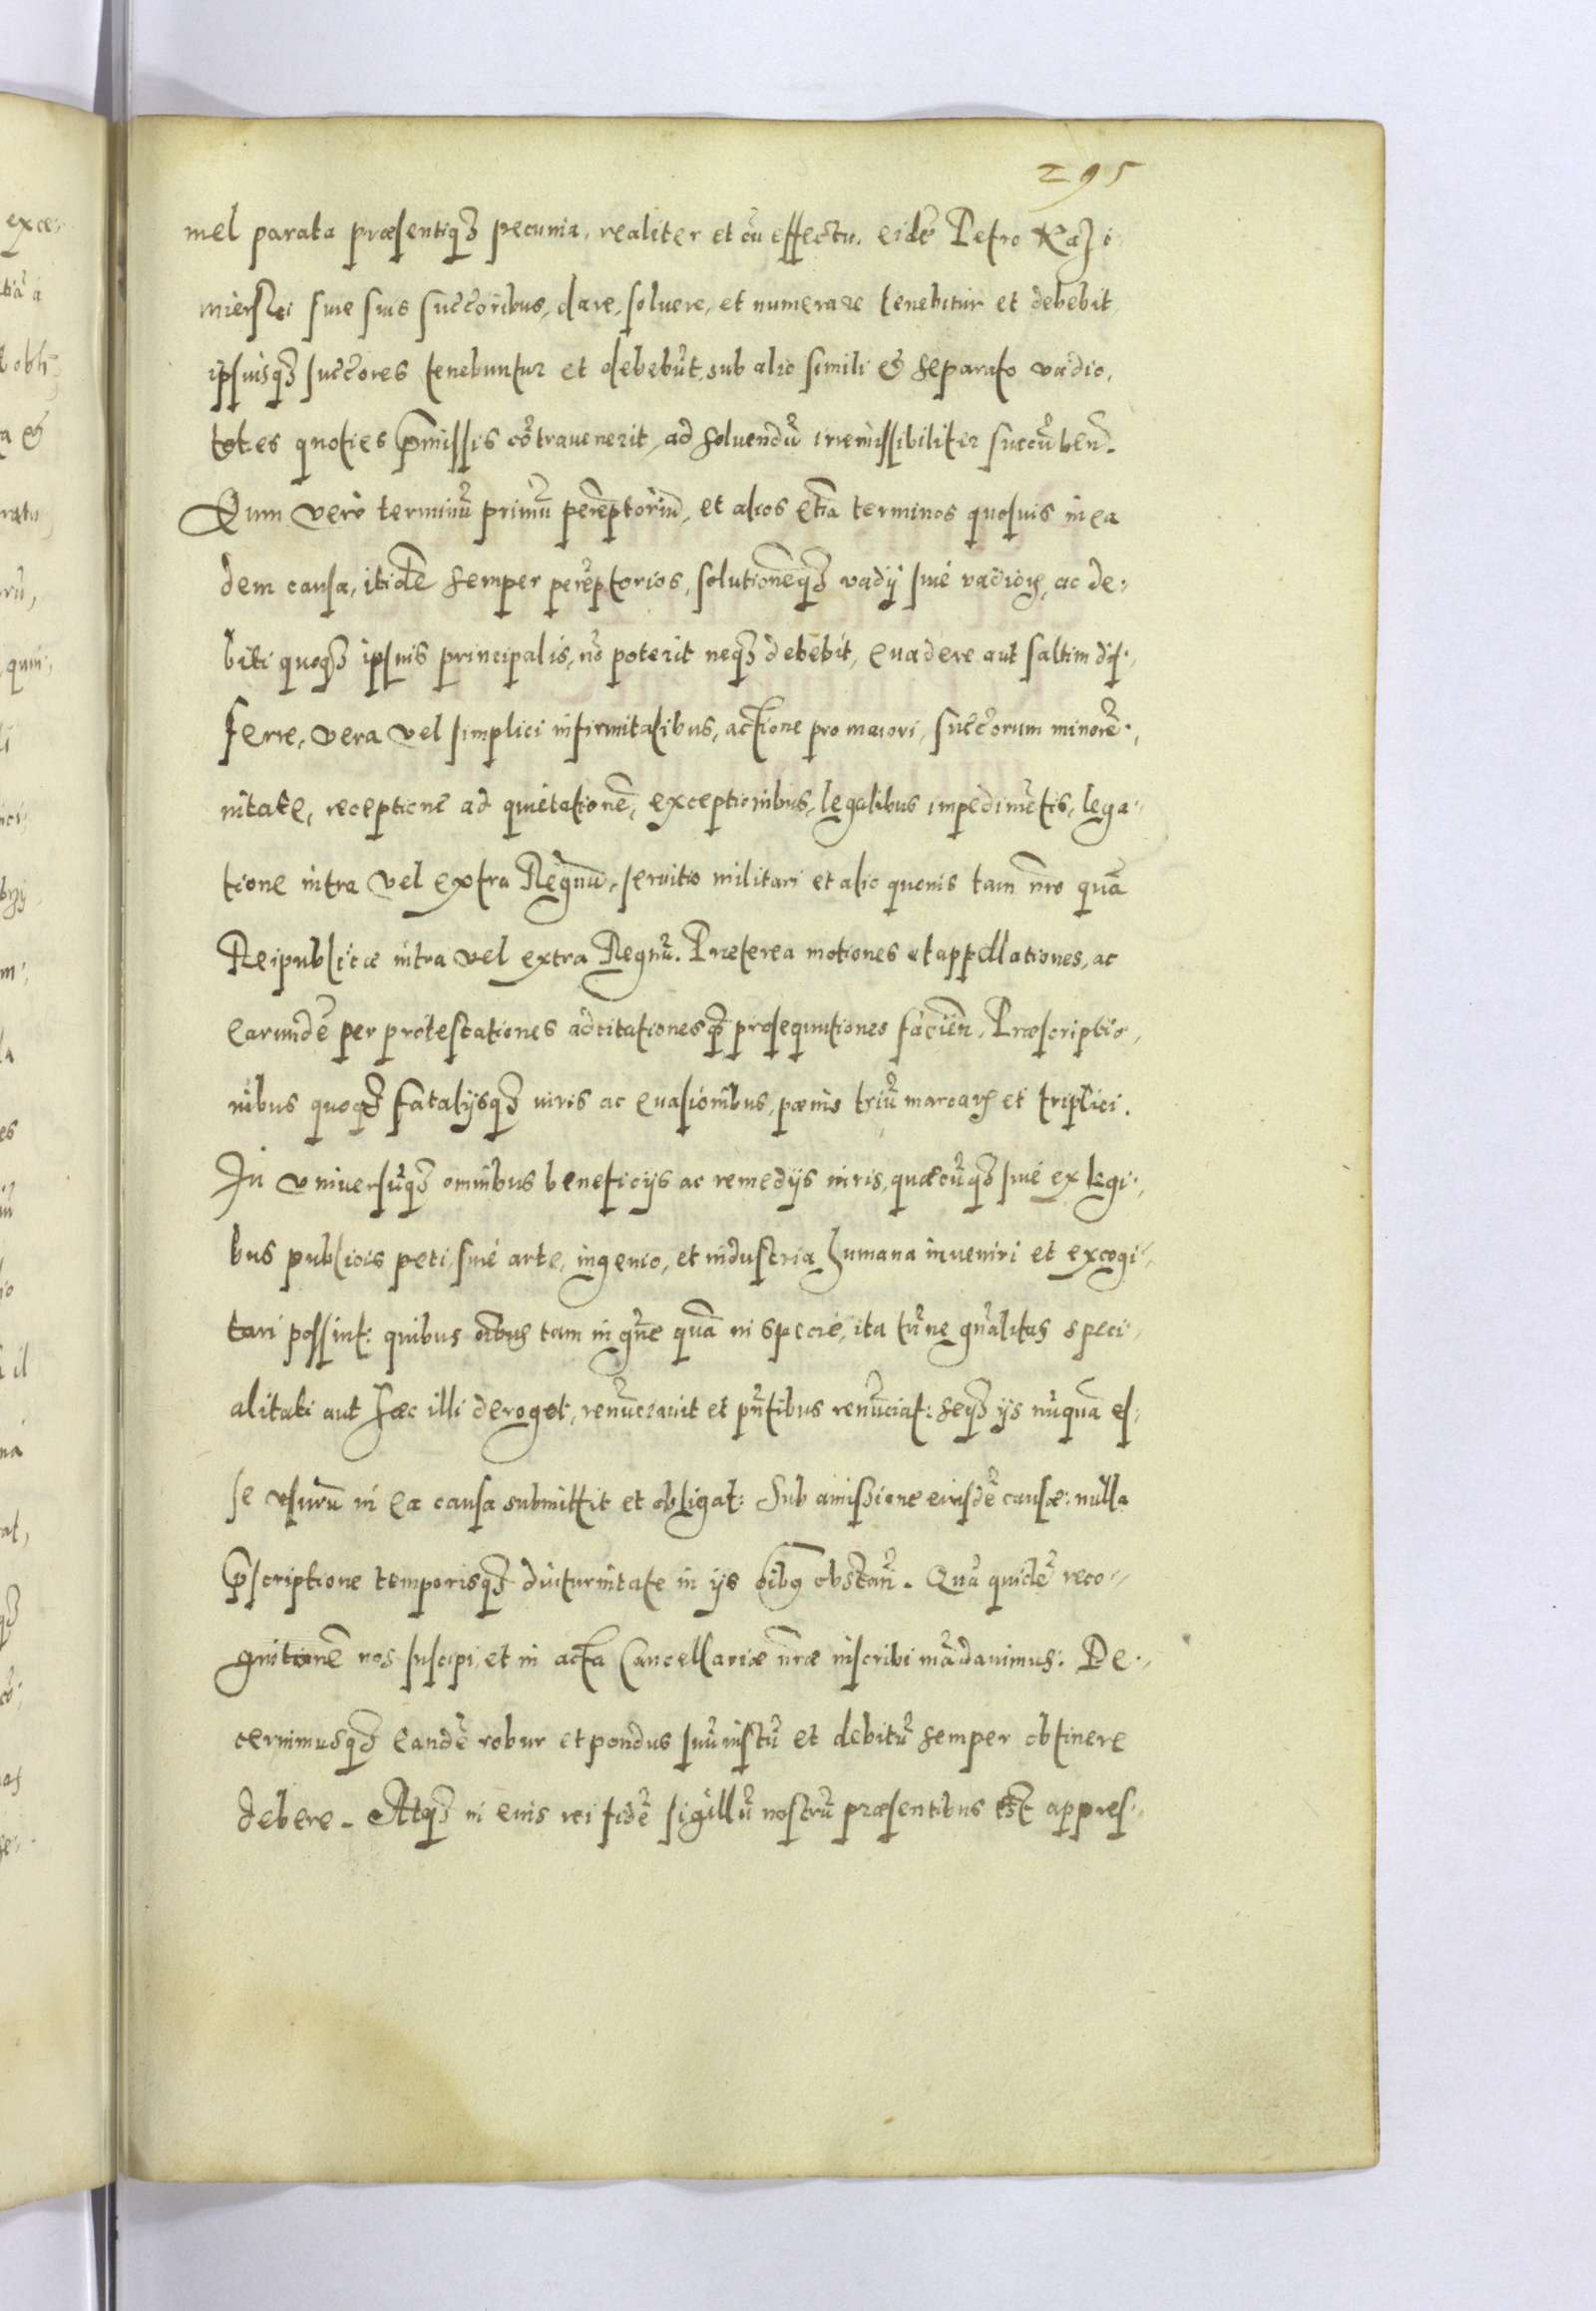 295
mel parata præsentiq₃ pecunia, realiter et cũ effectu. eidẽ Petro Kazi
mierski siue suis succoribus, dare, soluere, et numerare tenebitur et debebit
ipsiusq₃ succores tenebuntur et debebũt, sub alio simili et separato vadio,
toties quoties p̃missis cõtrauenerit, ad soluendũ irremissibiliter succũben̄.
Qum verò terminũ primũ perẽptoriũ, et alios etiã terminos quosuis in ea
dem causa, itidẽ semper perẽptorios, solutionẽq₃ vadij siuè vadioꝝ, ac de:
biti quoq₃ ipsius principalis, nõ poterit neq₃ debebit, euadere aut saltim dif:,
ferre, vera vel simplici infirmitatibus, actione pro maiori, succorum minorẽ:,
nitate, receptione ad quietationẽ, exceptionibus, legalibus impedimẽtis, lega:
tione intra vel extra Regnũ, seruitio militari et alio quouis tam nr̃o quã
Reipublicæ intra vel extra Regnũ. Præterea motiones et appellationes, ac
earundẽ per protestationes adcitationesq₃ prosequutiones facien̄. Præscriptio,
nibus quoq₃ fatalijsq₃ iuris ac euasionibus, pœnis triũ marcaꝝ et triplici.
In vniuersũq₃ omnibus beneficijs ac remedijs iuris, quæcũq₃ siuè ex legi:,
bus publicis peti, siuè arte, ingenio, et industria humana inueniri et excogi:,
tari possint: quibus oĩbus tam in gñe quã in specie, ita tñ ne gñalitas speci,
alitati aut hæc illi deroget, renũciauit et pñtibus renũciat: seq₃ ijs nũquã es:
se vsurũ in ea causa submittit et obligat: Sub amissione eiusdẽ causæ: nulla
p̃scriptione temporisq₃ diuturnitate in ijs oĩbꝰ obstan̄. Quã quidẽ reco:,
gnitionẽ nos suscipi, et in acta Cancellariæ nr̃æ inscribi mãdauimus: De:,
cernimusq₃ eandẽ robur et pondus suũ iustũ et debitũ semper obtinere
debere. Atq₃ in eius rei fidẽ sigillũ nostrũ præsentibus est appres:,